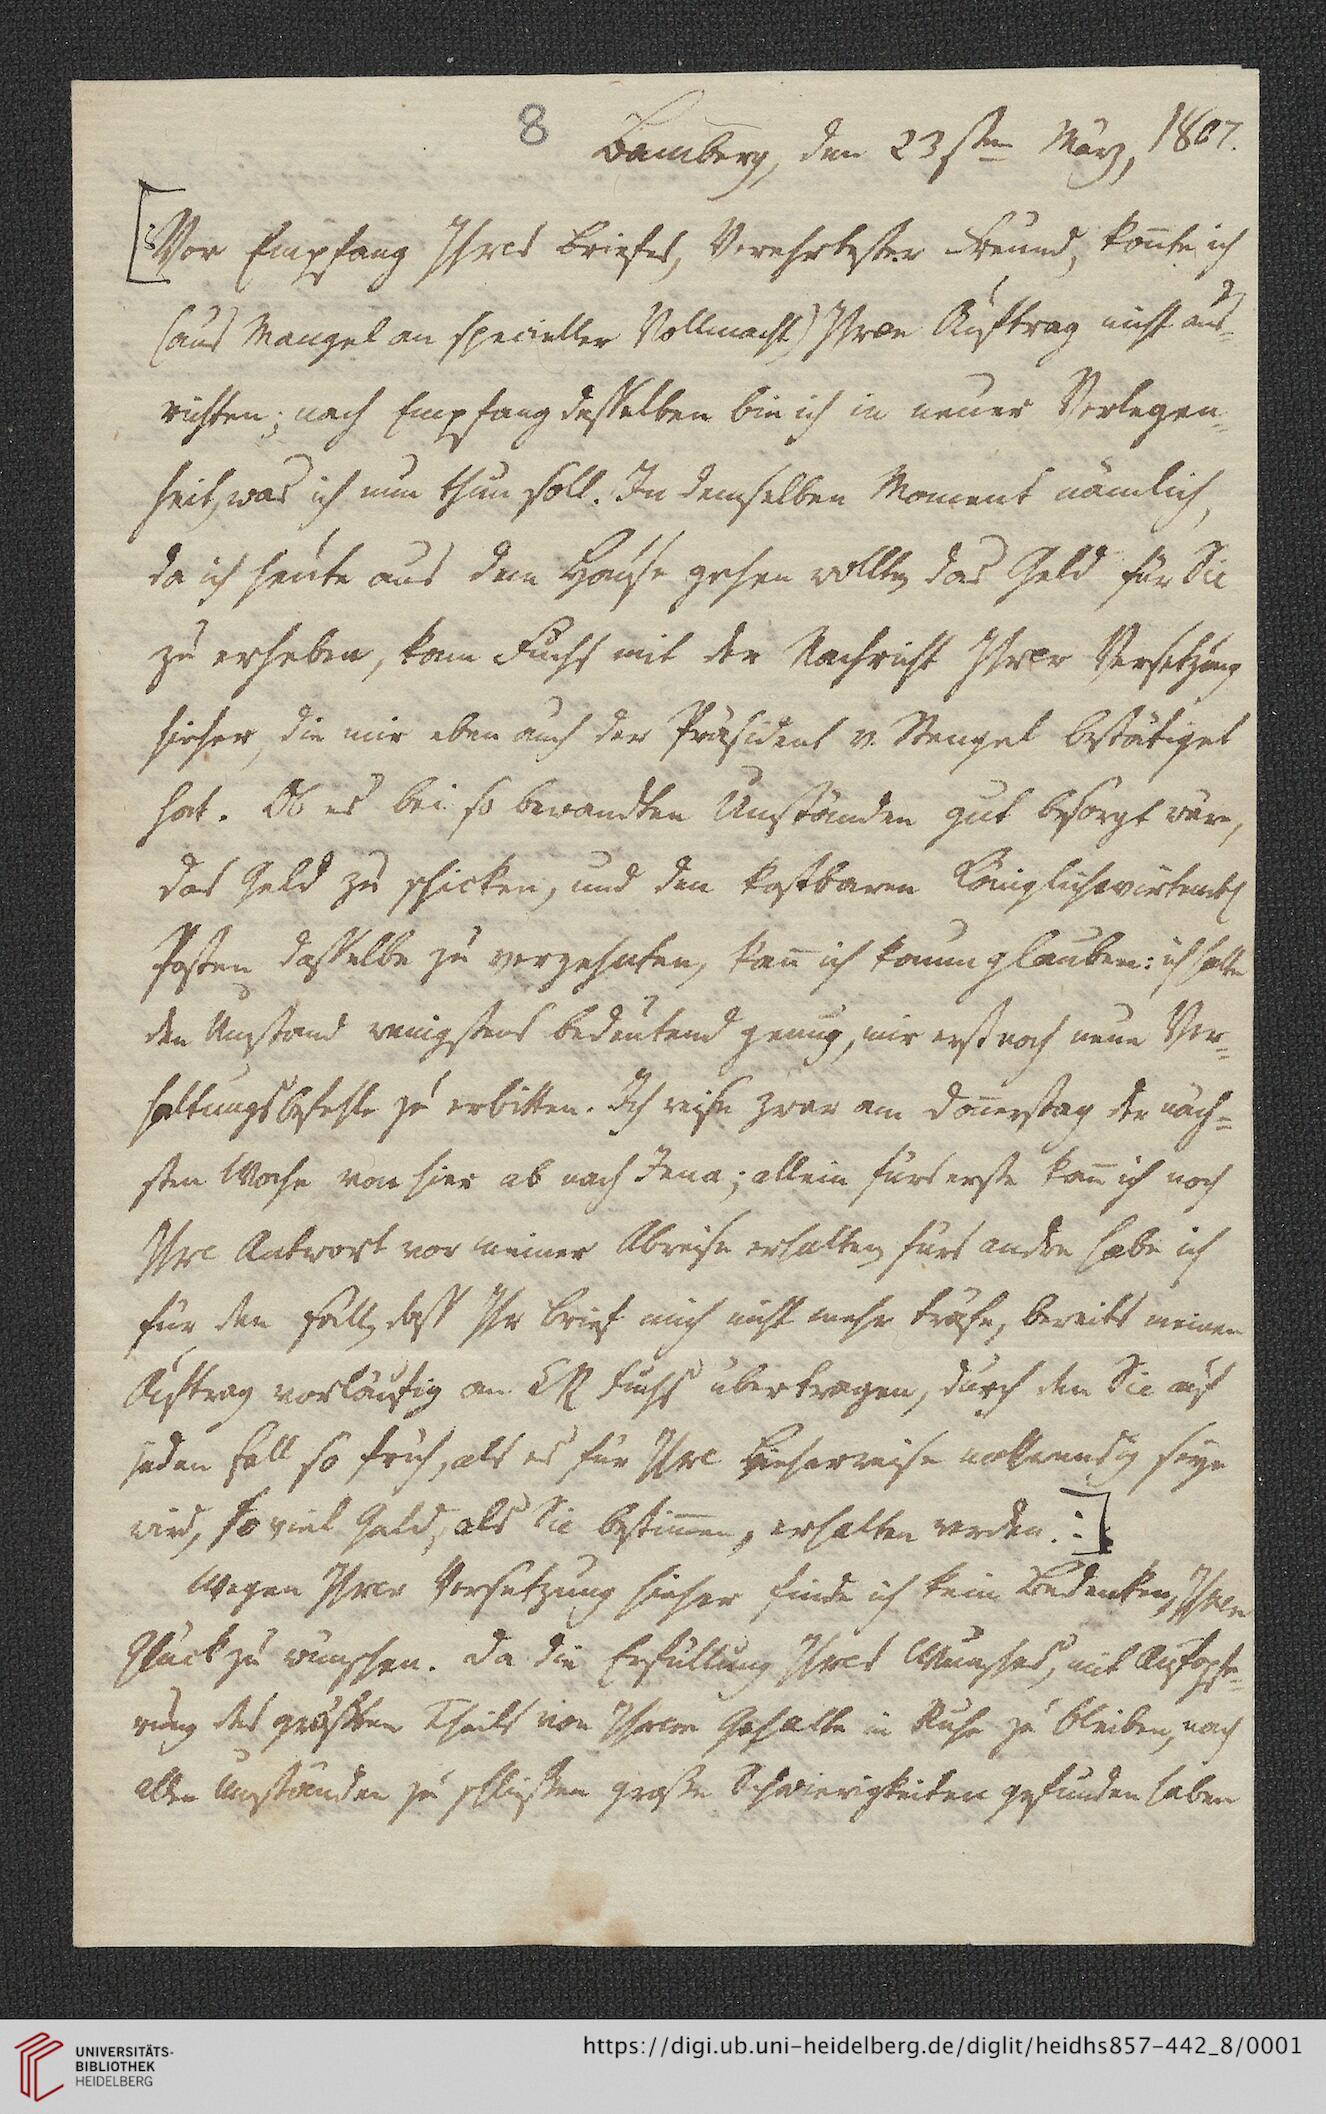 8
Bamberg, den 23sten März, 1807.
[: Vor Empfang Ihres Briefes, Verehrtester Freund, kon̄te ich
(aus Mangel an specieller Vollmacht) Ihren Auftrag nicht aus-
richten; nach Empfang desselben bin ich in neuer Verlegen-
heit, was ich nun thun soll. In demselben Moment nämlich,
da ich heute aus dem Hause gehen wollte, das Geld für Sie
zu erheben, kam Fuchs mit der Nachricht Ihrer Versetzung
hieher, die mir eben auch der Präsident v. Stengel bestätiget
hat. Ob es bei so bewandten Umständen gut besorgt wäre,
das Geld zu schicken, und den kostbaren
Posten dasselbe zu verzehnten, kan̄ ich kaum glauben: ich halte
den Umstand wenigstens bedeutend genug, mir erst noch neue Ver-
haltungsbefehle zu erbitten. Ich reise zwar am Don̄erstag der näch-
sten Woche von hier ab nach Jena; allein fürs erste kan̄ ich noch
Ihre Antwort vor meiner Abreise erhalten, fürs andre habe ich
für den Fall, dass Ihr Brief mich nicht mehr träfe, bereits meinen
Auftrag vorläufig an Fuchs übertragen, durch den Sie auf
jeden Fall so früh, als es für Ihre Hieherreise nothwendig seyn
wird, so viel Geld, als Sie bestim̄en, erhalten werden. :]
Wegen Ihrer Versetzung hieher finde ich kein Bedenken, Ihnen
Glück zu wünschen. Da die Erfüllung Ihres Wunsches, mit Aufopfe-
rung des grössten Theils von Ihrem Gehalte in Ruhe zu bleiben, nach
allen Umständen zu schließen große Schwierigkeiten gefunden haben
UNIVERSITÄTS-
BIBLIOTHEK
HEIDELBERG
https://digi.ub.uni-heidelberg.de/diglit/heidhs857-442_8/0001